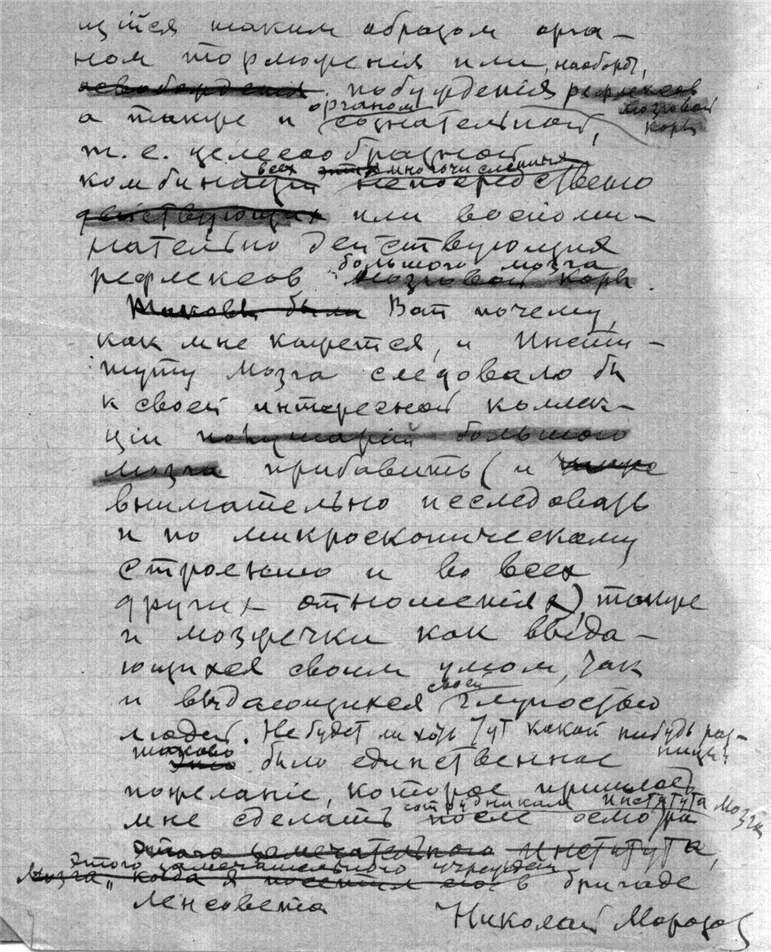 щтся таким образом орга-
ном торможенія или, наоборот,
освобожденія побужденія рефлексов
мозговой
коры
органом
а также и сознательной,
т. е. целесообразной
всех этих многочисленных
комбинаціи непосредственно
действующих или воспоми-
нательно действующих
большого мозга
рефлексов мозговой коры.
Таковы были Вот почему,
как мне кажется, и Инсти-
туту мозга следовало бы
к своей интересной коллек-
ціи полушарій большого
мозга прибавить (и
внимательно исследовать
и по микроскопическому
строенію и во всех
других отношеніях), также
и мозжечки как выда-
ющихся своим умом, так
своей
и выдающихся глупостью
людей. Не будет ли хоть тут какой нибудь раз-
ницы
таково
Это было единственное
пожеланіе, которое пришлось
сотрудникам Института Мозга
мне сделать после осмотра
этого замечательного Института,
этого замечательного учрежден
Мозга, когда я посетил его в бригаде
Ленсовета
Николай Морозов